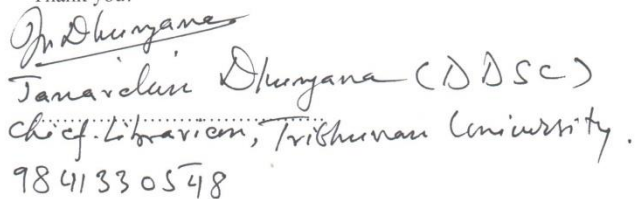 Thank you.
Jn Dhungana
Janardan Dhungana (DDSC)
Chief. Librarian, Tribhuvan University.
9841330548